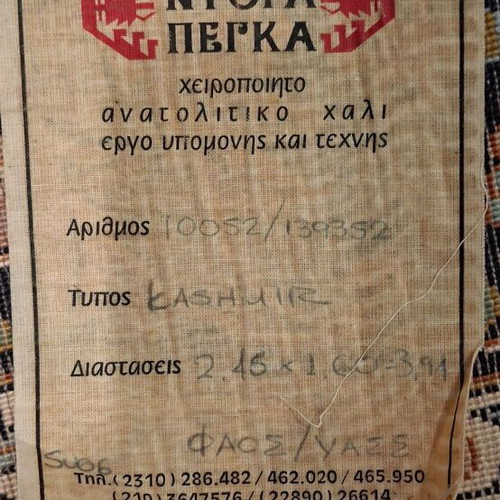 ΠΕΡΚΑ
χειροποιητο
ανατολιτικο χαλι
εργο υπομονης και τεχνης
Αριθμος 10052/139352
Τυπος KASHMIR
Διαστασεις 2.46 x 1.60=3,94
Τηλ.(2310) 286.482 / 462.020 / 465.950
(210) 3647576 / (22890) 26614